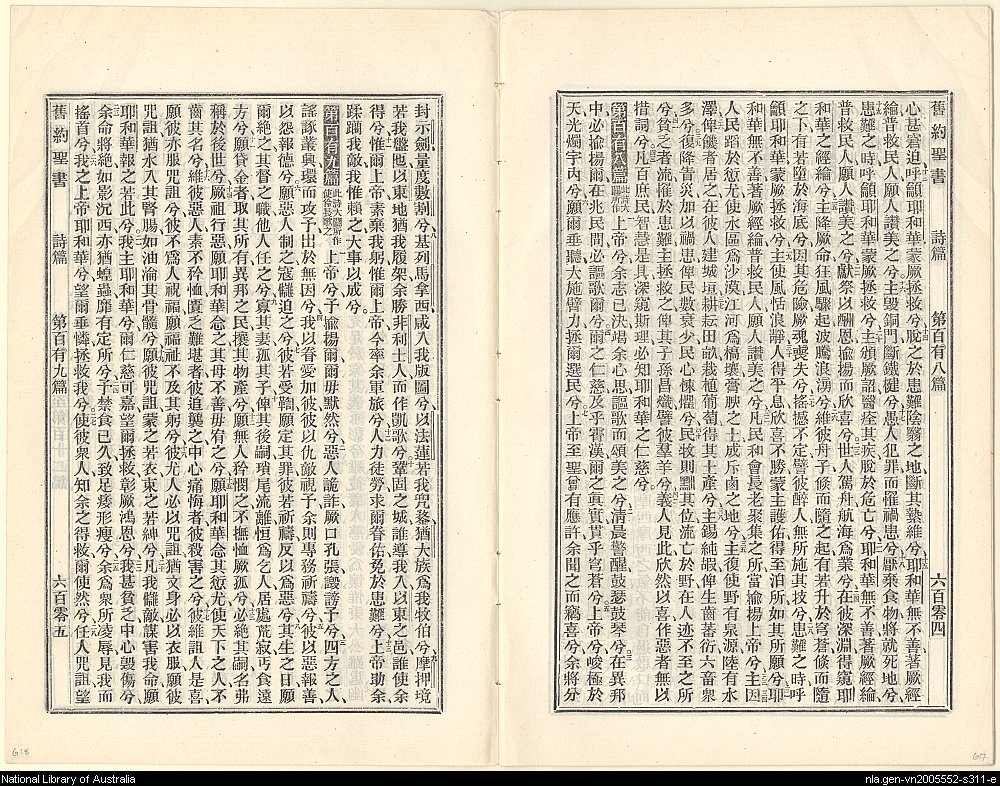 舊約聖書 詩篇 第百有八篇 六百零四
心甚窘迫呼籲耶和華蒙厥拯救兮脫之於患難陰翳之地斷其縶維兮耶和華無不善著厥經
綸普救民人願人讚美之兮主毀銅門斷鐵健兮愚人犯罪而罹禍患兮厭棄食物將就死地兮
患難之時呼籲耶和華蒙厥拯救兮主頒厥詔醫痊其疾脫於危亡兮耶和華無不善著厥經綸
普救民人願人讚美之兮獻祭以酬恩揄揚而欣喜兮世人駕舟航海為業兮在彼深淵得窺耶
和華之經綸兮主降厥命狂風驟起波騰浪湧兮維彼舟子倏而隨之起有若升於穹蒼倏而隨
之下有若墮於海底兮因其危險厥魂喪失兮搖撼不定譬彼醉人無所施其技兮患難之時呼
籲耶和華蒙厥拯救兮主使風恬浪靜人得平息欣喜不勝蒙主護佑得至泊所如其所願兮耶
和華無不善著厥經綸普救民人願人讚美之兮凡民和會長老聚集之所當揄揚上帝兮主因
人民蹈於愆尤使水區為沙漠江河為槁壤膏腴之土成斥鹵之地兮主復使野有泉源陸有水
澤俾饑者居之在彼人建城垣耕耘田畝栽植葡萄得其土產兮主錫純嘏俾生齒蕃衍六畜衆
多兮復降眚災加以禍患俾民數衰少民心悚懼兮民牧則黜其位流亡於野在人迹不至之所
兮貧乏者流離於患難主拯救之俾其子孫昌熾譬彼羣羊兮義人見此欣然以喜作惡者無以
措詞兮凡百庶民智慧是具深窺斯理必知耶和華之仁慈兮
第百有八篇 此詩大闢所作 上帝兮余志已決場余心思謳歌而頌美之兮清晨警醒鼓瑟鼓琴兮在異邦
中必揄揚爾在兆民間必謳歌爾兮爾之仁慈及乎霄漢爾之真實貫乎穹蒼兮上帝兮峻極於
天光燭宇內兮願爾垂聽大施臂力拯爾選民兮上帝至聖曾有應許余聞之而竊喜兮余將分
封示劍量度數割兮基列馬拿西咸入我版圖兮以法蓮若我兜鍪猶大族為我牧伯兮摩押境
若我盤匜以東地猶我履架余勝非利士人而作凱歌兮鞏固之城誰導我入以東之邑誰使余
得兮惟爾上帝素棄我躬惟爾上帝今率余軍旅兮人力徒勞求爾眷佑免於患難兮上帝助余
蹂躪我敵我惟賴之大事以成兮
第百有九篇 此詩大闢所作使伶長歌之 上帝兮予揄揚爾爾毋默然兮惡人詭詐厥口孔張譭謗予兮四方之人
謠諑叢興環而攻予出於無因兮我以眷愛加彼彼以仇敵視予余則專務祈禱兮彼以惡報善
以怨報德兮願惡人制之寇讎迫之兮彼若受鞫願定其罪彼若祈禱反以為惡兮其生之日願
爾絕之其督之職他人任之兮寡其妻孤其子俾其後嗣瑣尾流離恒為乞人居處荒寂丐食遠
方兮願貸金者取其所有異邦之民攘其物產兮願無人矜憫之不撫恤厥孤兮必絕其嗣名弗
稱於後世兮厥祖行惡願耶和華念之其母不善毋宥之兮願耶和華念其愆尤使天下之人不
齒其名兮維彼惡人素不矜恤賚乏難堪者彼迫襲之中心痛悔者彼殺害之兮彼維詛人是喜
願彼亦服咒詛兮彼不為人祝福願福祉不及其躬兮彼尤人必以咒詛猶文身必以衣服願彼
咒詛猶水入其腎腸如油淪其骨髓兮願彼咒詛蒙之若衣束之若紳兮凡我讎敵謀害我命願
耶和華報之若此兮我主耶和華兮爾仁慈可嘉望爾拯救彰厥鴻恩兮我甚貧乏中心毀傷兮
余命將絕如影沉西亦猶蝗蟲靡有定所兮予禁食已久致足痿形瘦兮余為衆所凌辱見我而
搖首兮我之上帝耶和華兮望爾垂憐拯救我兮使彼衆人知余之得救爾使然兮任人咒詛望
舊約聖書 詩篇 第百有九篇 六百零五
618
617
National Library of Australia
nla.gen-vn2005552-s311-e